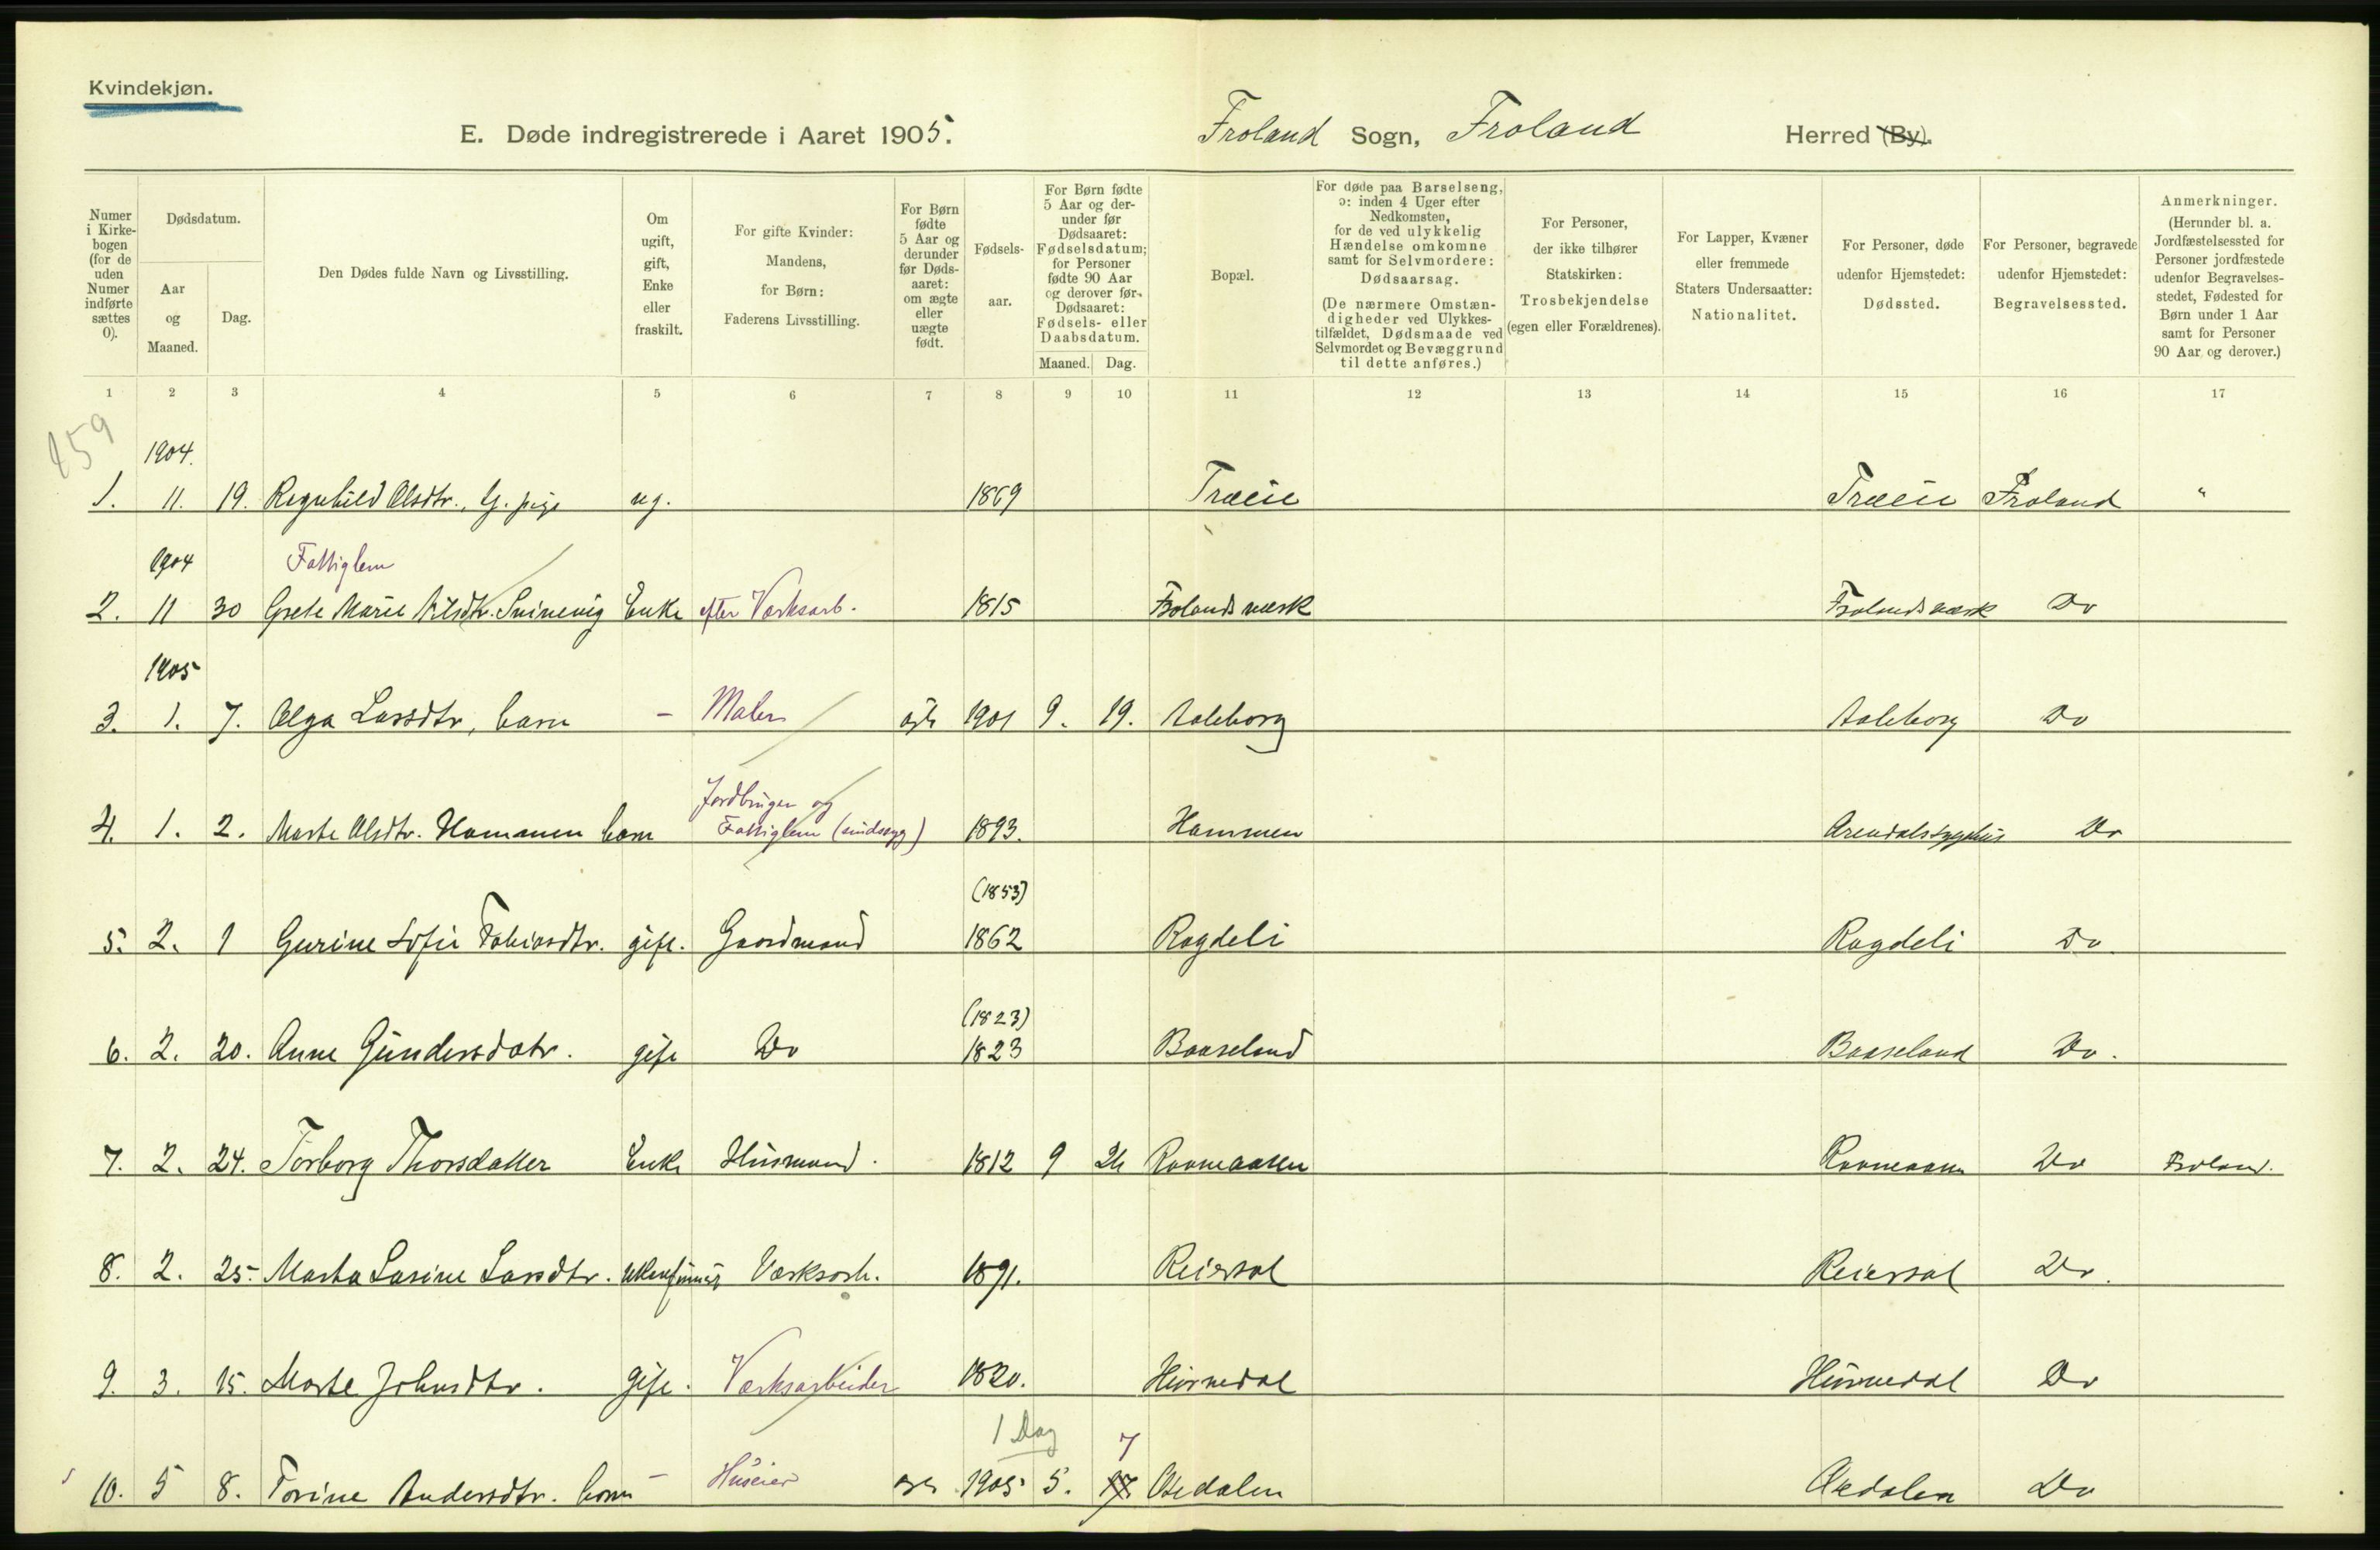 Kvindekjøn.
E. Døde indregistrerede i Aaret 1905. Froland Sogn, Froland Herred (By).
Numer i Kirkebogen (for de uden Numer indførte sættes 0).
Dødsdatum.
Aar og Maaned.
Dag.
Den Dødes fulde Navn og Livsstilling.
Om ugift, gift, Enke eller fraskilt.
For gifte Kvinder: Mandens, for Børn: Faderens Livsstilling.
For Børn fødte 5 Aar og derunder før Dødsaaret: om ægte eller uægte født.
Fødselsaar.
For Børn fødte 5 Aar og derunder før Dødsaaret: Fødselsdatum; for Personer fødte 90 Aar og derover før Dødsaaret: Fødsels- eller Daabsdatum.
Maaned. Dag.
Bopæl.
For døde paa Barselseng, ɔ: inden 4 Uger efter Nedkomsten, for de ved ulykkelig Hændelse omkomne samt for Selvmordere: Dødsaarsag.
(De nærmere Omstændigheder ved Ulykkestilfældet, Dødsmaade ved Selvmordet og Bevæggrund til dette anføres.)
For Personer, der ikke tilhører Statskirken: Trosbekjendelse (egen eller Forældrenes).
For Lapper, Kvæner eller fremmede Staters Undersaatter: Nationalitet.
For Personer, døde udenfor Hjemstedet: Dødssted.
For Personer, begravede udenfor Hjemstedet: Begravelsessted.
Anmerkninger.
(Herunder bl. a. Jordfæstelsessted for Personer jordfæstede udenfor Begravelsesstedet, Fødested for Børn under 1 Aar samt for Personer 90 Aar og derover.)
1 2 3 4 5 6 7 8 9 10 11 12 13 14 15 16 17
459
1904.
1. 11. 19. Regnhild Olsdtr., G. pige ug. 1869 Træie Træie Froland "
1904 Fattiglem
2. 11 30 Grete Marie Nilsdtr. Enke efter Værksarb. 1815 Frolandsværk Frolandsværk Do
1905
3. 1. 7. Olga Larsdtr, barn - Maler ægte 1901 9. 19. Aaleborg Aaleborg Do
Jordbruger og
4. 1. 2. Marte Olsdtr. Hammen barn Fattiglem (sindssyg) 1893. Hammen Arendals sygehus Do
(1853)
5. 2. 1 Gurine Sofie Tobiasdtr. gift. Gaardmand 1862 Ragdeli Ragdeli Do.
(1823)
6. 2. 20. Anne Gundersdatr. gift Do 1823 Baaseland Baaseland Do.
7. 2. 24. Torborg Thorsdatter Enke Husmand. 1812 9 24 Do Froland.
8. 2. 25. Marta Lasine Larsdtr. Værksarb. 1891. Reiersøl Reiersøl Do.
9. 3. 15. Marte Johnsdtr. gift. Værksarbeider 1820. Hurvedal Hurvedal Do
1 Dag 7
10. 5 8. Torine Andersdtr. barn - Huseier 1905 5. 17. Osedalen Osedalen Do